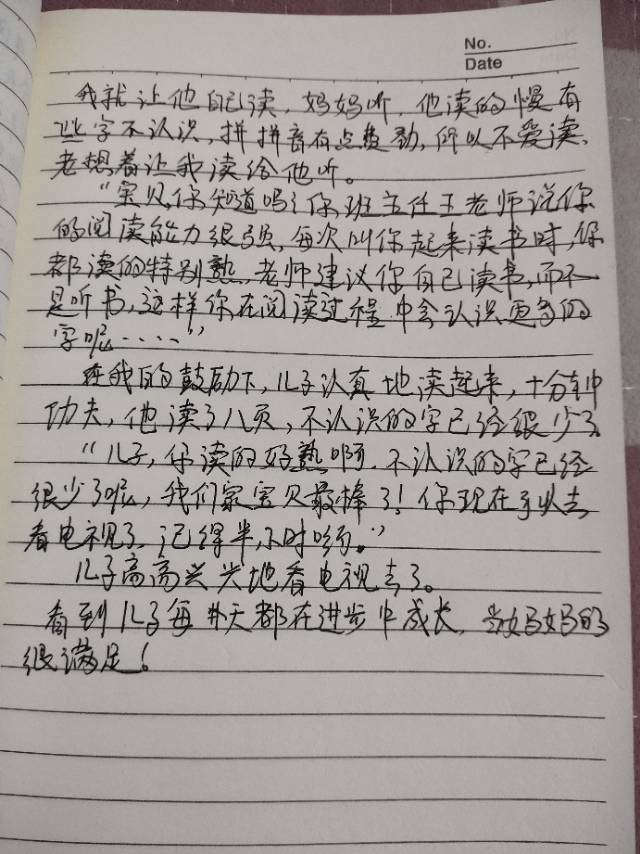 No.
Date
我就让他自己读，妈妈听，他读的慢有
些字不认识，拼拼音有点费劲，所以不爱读、
老想着让我读给他听。
“宝贝，你知道吗？你班主任王老师说你
的阅读能力很强，每次叫你起来读书时，你
都读的特别熟，老师建议你自己读书，而不
是听书，这样你在阅读过程中会认识更多的
字呢····”
在我的鼓励下，儿子认真地读起来，十分钟
功夫，他读了八页，不认识的字已经很少了
“儿子，你读的好熟啊，不认识的字已经
很少了呢，我们家宝贝最棒了！你现在可以去
看电视了，记得半小时哟。”
儿子高高兴兴地看电视去了。
看到儿子每天都在进步中成长，当妈妈的
很满足！